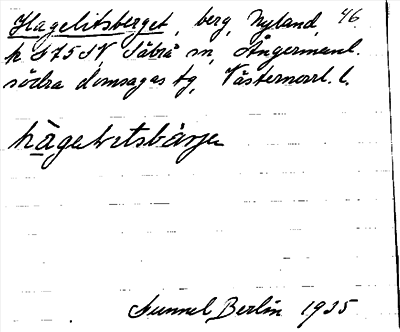 Hagelitsberget, berg, Nyland, 46.
h 575 SV Säbrå sn, Ångermanl.
södra domsagas tg, Västernorrl. l.
hagelitsbärje
Gunnel Berlin 1935